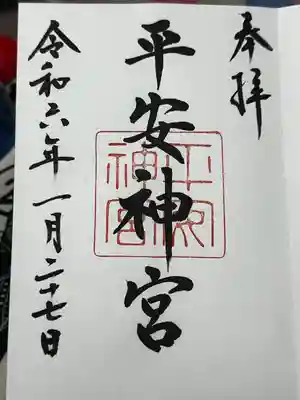 奉拝
平安神宮
令和六年一月二十七日